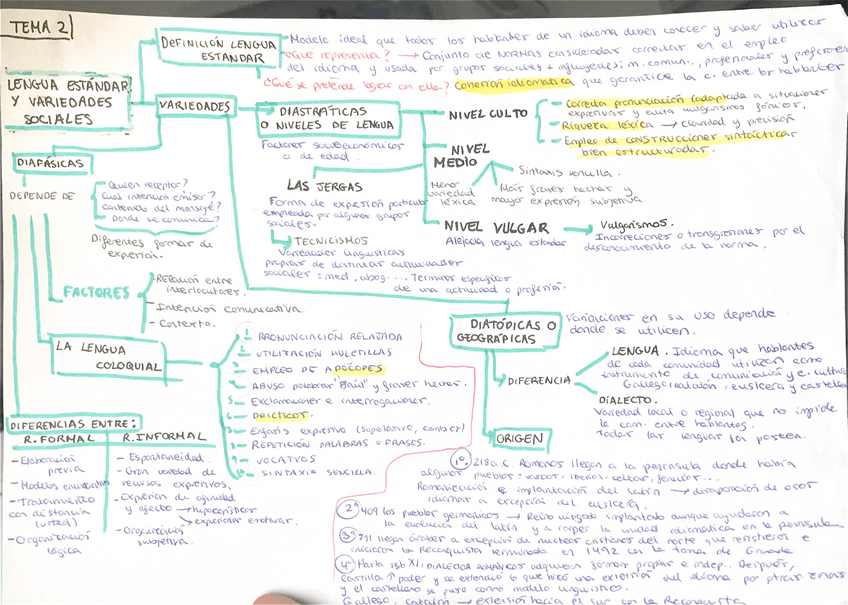 TEMA 2
DEFINICIÓN LENGUA
ESTANDAR
- Modelo ideal que todos los hablantes de un idioma deben conocer y saber utilizar
¿Qué representa? → Conjunto de NORMAS consideradas correctas en el empleo
del idioma y usada por grupos sociales + influyentes; m. comun., profesionales y profesores
¿Qué se pretende lograr con ello? Conexión idiomática que garantice la c. entre los hablantes
LENGUA ESTÁNDAR
Y VARIEDADES
SOCIALES
VARIEDADES
DIASTRÁTICAS
O NIVELES DE LENGUA
Factores socioeconómicos
o de edad.
NIVEL CULTO
- Correcta pronunciación adaptada a situaciones
expresivas y evita vulgarismos fónicos.
- Riqueza léxica → claridad y precisión
- Empleo de CONSTRUCCIONES sintácticas
bien estructuradas.
NIVEL
MEDIO
Menor
variedad
léxica
Sintaxis sencilla.
Más frases hechas y
mayor expresión subjetiva.
NIVEL VULGAR
Alejada lengua estándar
Vulgarismos.
Incorrecciones o transgresiones por el
desconocimiento de la norma.
LAS JERGAS
Forma de expresión particular
empleada por algunos grupos
sociales.
TECNICISMOS
Variedades lingüísticas
propias de distintas actividades
sociales: med, abog... Términos específicos
de una actividad o profesión.
DIAFÁSICAS
DEPENDE DE
- Quien receptor?
- Cual intención emisor?
- contenido del mensaje?
- Donde se comunica?
Diferentes formas de
expresión.
FACTORES
- Relación entre
interlocutores.
- Intención comunicativa.
- Contexto.
LA LENGUA
COLOQUIAL
1 - PRONUNCIACIÓN RELAJADA
2 - UTILIZACIÓN MULETILLAS
3 - EMPLEO DE APÓCOPES
4 - ABUSO palabras "Baúl" y frases hechas.
5 - Exclamaciones e interrogaciones.
6 - DEÍCTICOS.
7 - Énfasis expresivo (superlativo,
8 - REPETICIÓN PALABRAS O FRASES.
9 - VOCATIVOS
10 - SINTAXIS SENCILLA.
DIFERENCIAS ENTRE:
R. FORMAL
- Elaboración
previa
- Modelos
- Tratamiento
con distancia
(usted)
- Organización
lógica
R. INFORMAL
- Espontaneidad
- Gran variedad de
recursos expresivos.
- Expresión de
y afecto → hipocorísticos
→ expresiones emotivas.
- Organización
subjetiva.
DIATÓDICAS O
GEOGRÁFICAS
Variaciones en su uso depende
donde se utilicen.
DIFERENCIA
LENGUA. Idioma que hablantes
de cada comunidad utilizan como
instrumento de comunicación y e. cultura
Gallego, catalán, euskera y castellano
DIALECTO.
Variedad local o regional que no impide
la com. entre hablantes.
Todas las lenguas los poseen.
ORIGEN
1º. 218 a.C. Romanos llegan a la península donde había
algunos pueblos: vascos, iberos, celtas, fenicios...
Romanización e implantación del latín → desaparición de esos
idiomas a excepción del euskera.
2º 409 los pueblos germánicos → Reino visigodo implantado aunque ayudaron a
la evolución del latín y a romper la unidad idiomática en la península
3º 711 llegan árabes a excepción de núcleos cristianos del norte que resistieron e
iniciaron la Reconquista terminada en 1492 con la toma de Granada
4º Hasta siglo XI, DIALECTOS ROMÁNICOS adquieren formas propias e indep. Después,
Castilla ↑ poder y se extendió lo que hizo una extensión del idioma por otras zonas
y el castellano se puso como modelo lingüístico.
Gallego, catalán → extensión hacia el sur con la Reconquista